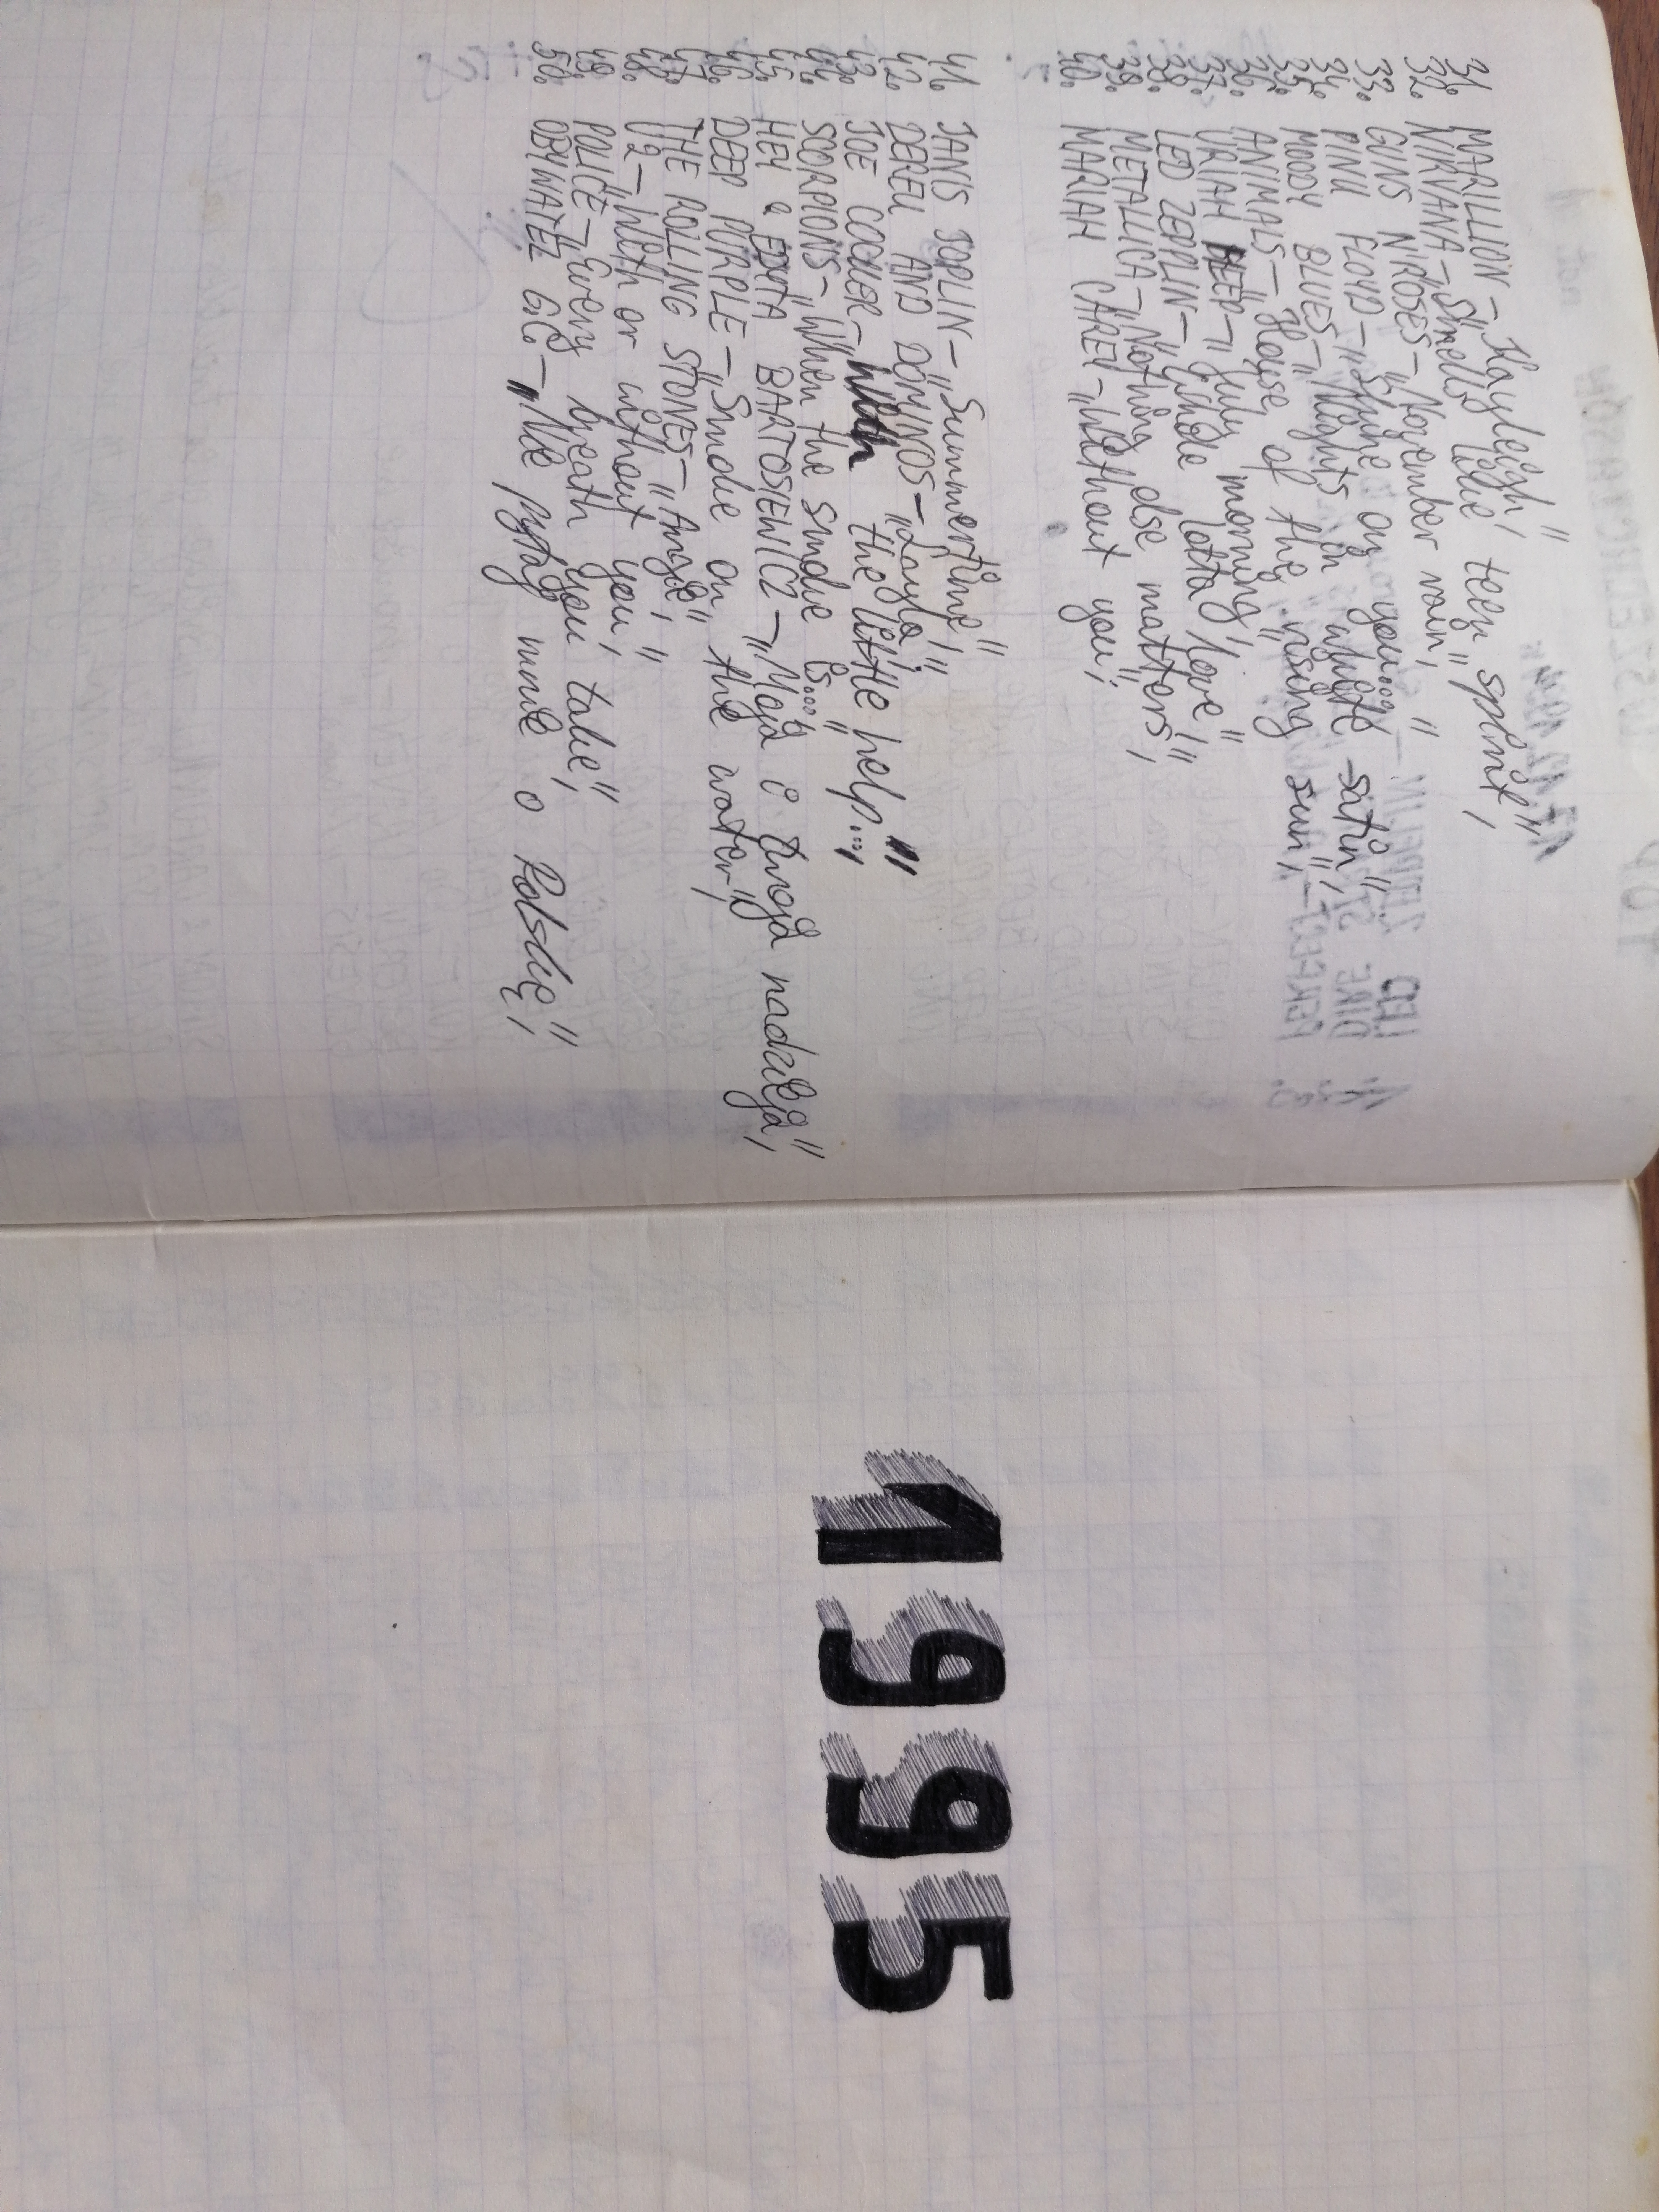 31. MARILLION – „Kayleigh"
32. NIRVANA – „Smells like teen spirit"
33. GUNS N'ROSES – „November rain"
34. PINK FLOYD – „Shine on you..."
35. MOODY BLUES – „Nights in white satin"
36. ANIMALS – „House of the rising sun"
37. URIAH HEEP – „July morning"
38. LED ZEPPLIN – „Whole lotta love"
39. METALLICA – „Nothing else matters"
40. MARIAH CAREY – „Without you"
41. JANIS JOPLIN – „Summertime"
42. DEREK AND DOMINOS – „Layla"
43. JOE COCKER – „With the little help..."
44. SCORPIONS – „When the smoke is..."
45. HEY & EDYTA BARTOSIEWICZ – „Moja i twoja nadzieja"
46. DEEP PURPLE – „Smoke on the water"
47. THE ROLLING STONES – „Angie"
48. U2 – „With or without you"
49. POLICE – „Every breath you take"
50. OBYWATEL G.C. – „Nie pytaj mnie o Polskę"
1995